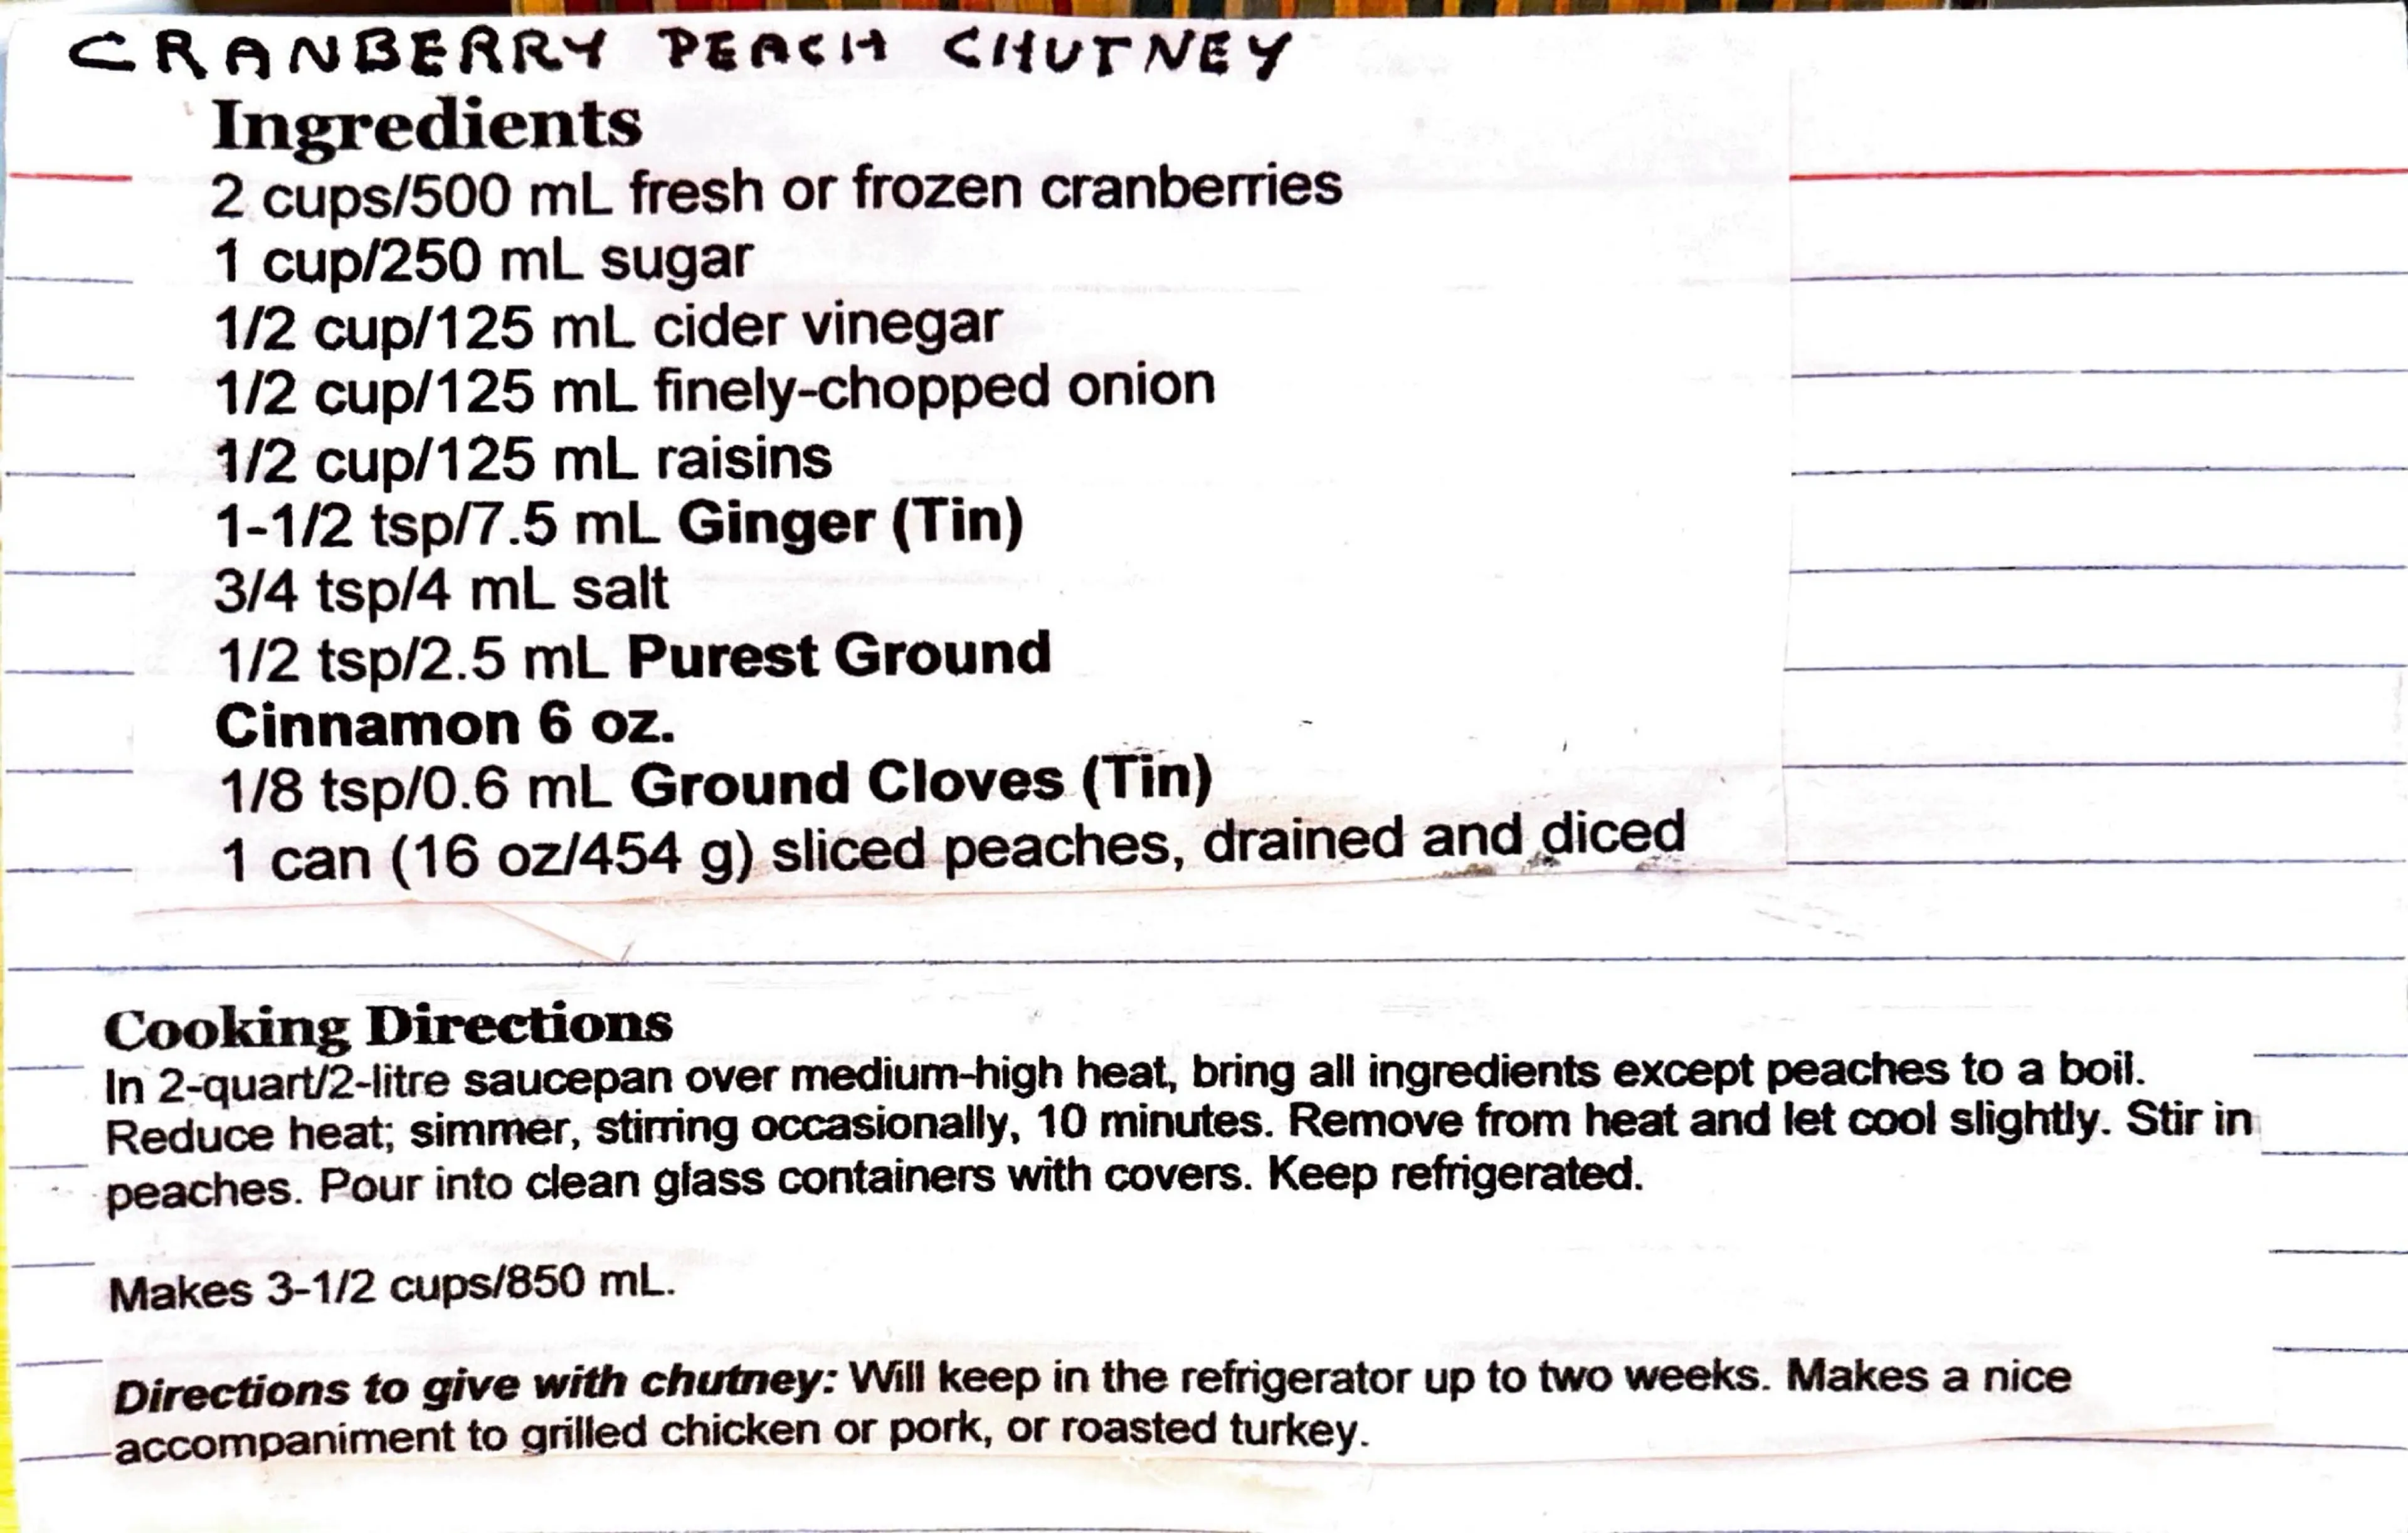 CRANBERRY PEACH CHUTNEY
Ingredients
2 cups/500 mL fresh or frozen cranberries
1 cup/250 mL sugar
1/2 cup/125 mL cider vinegar
1/2 cup/125 mL finely-chopped onion
1/2 cup/125 mL raisins
1-1/2 tsp/7.5 mL Ginger (Tin)
3/4 tsp/4 mL salt
1/2 tsp/2.5 mL Purest Ground
Cinnamon 6 oz.
1/8 tsp/0.6 mL Ground Cloves (Tin)
1 can (16 oz/454 g) sliced peaches, drained and diced
Cooking Directions
In 2-quart/2-litre saucepan over medium-high heat, bring all ingredients except peaches to a boil.
Reduce heat; simmer, stirring occasionally, 10 minutes. Remove from heat and let cool slightly. Stir in
peaches. Pour into clean glass containers with covers. Keep refrigerated.
Makes 3-1/2 cups/850 mL.
Directions to give with chutney: Will keep in the refrigerator up to two weeks. Makes a nice
accompaniment to grilled chicken or pork, or roasted turkey.